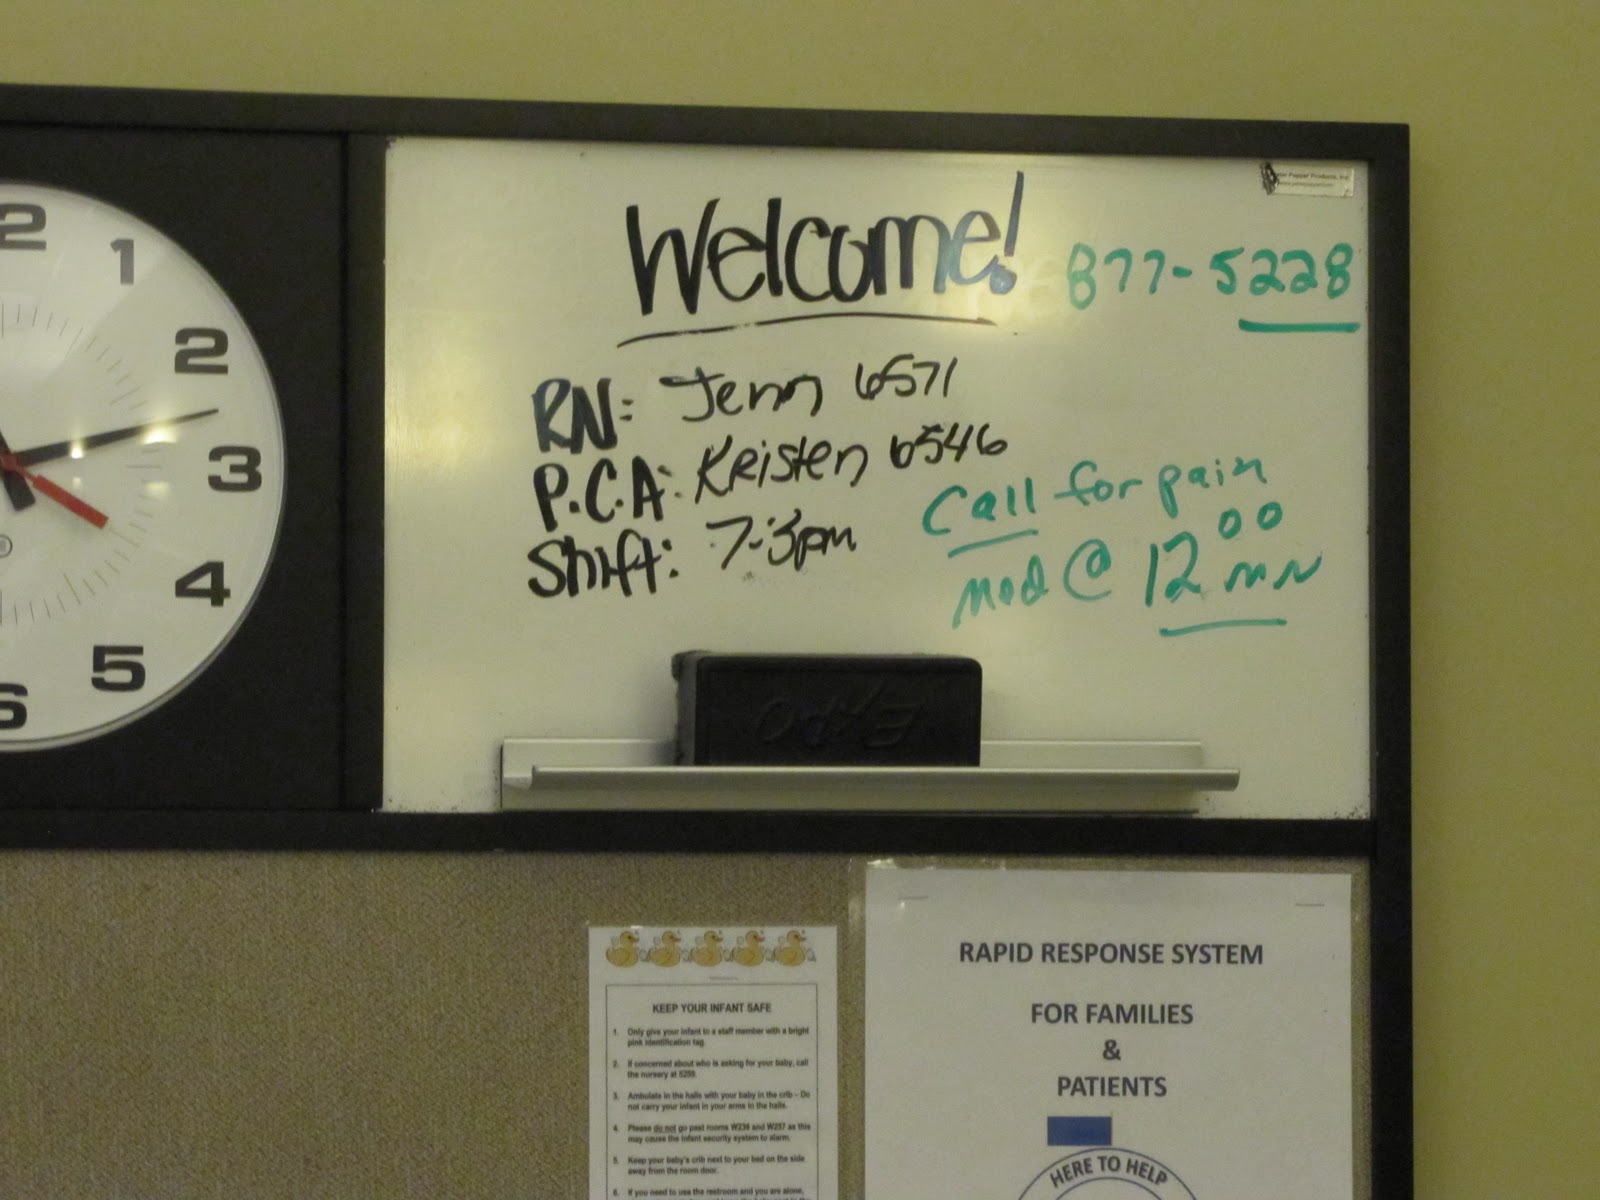 2
1
2
3
4
5
6
Welcome!
877-5228
RN: Jenn 6571
P.C.A: Kristen 6546
Shift: 7-3pm
Call for pain
med @ 12 00 MN
EXPO
KEEP YOUR INFANT SAFE
1. Only give your infant to a staff member with a bright
pink identification tag.
2. If concerned about who is asking for your baby, call
the nursery at 5259.
3. Ambulate in the halls with your baby in the crib – Do
not carry your infant in your arms in the halls.
4. Please do not go past rooms W236 and W257 as this
may cause the infant security system to alarm.
5. Keep your baby's crib next to your bed on the side
away from the room door.
6. If you need to use the restroom and you are alone,
RAPID RESPONSE SYSTEM
FOR FAMILIES
&
PATIENTS
HERE TO HELP